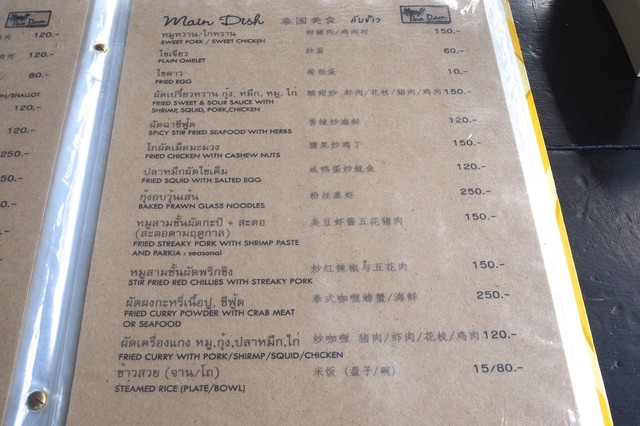 Main Dish 泰国美食 กับข้าว
Ban Dam
หมูหวาน/ไก่หวาน 鲜猪肉/鸡肉甜 150.-
SWEET PORK / SWEET CHICKEN
ไข่เจียว 炒蛋 60.-
PLAIN OMELET
ไข่ดาว 荷包蛋 10.-
FRIED EGG
ผัดเปรี้ยวหวาน กุ้ง, หมึก, หมู, ไก่ 酸甜炒 虾肉/花枝/猪肉/鸡肉 150.-
FRIED SWEET & SOUR SAUCE WITH
SHRIMP, SQUID, PORK,CHICKEN
ผัดฉ่าซีฟู้ด 香辣炒海鲜 120.-
SPICY STIR FRIED SEAFOOD WITH HERBS
ไก่ผัดเม็ดมะม่วง 腰果炒鸡丁 150.-
FRIED CHICKEN WITH CASHEW NUTS
ปลาหมึกผัดไข่เค็ม 咸鸭蛋炒鱿鱼 120.-
FRIED SQUID WITH SALTED EGG
กุ้งอบวุ้นเส้น 粉丝蒸虾 250.-
BAKED PRAWN GLASS NOODLES
หมูสามชั้นผัดกะปิ + สะตอ 臭豆虾酱五花猪肉 150.-
(สะตอตามฤดูกาล)
FRIED STREAKY PORK WITH SHRIMP PASTE
AND PARKIA : seasonal
หมูสามชั้นผัดพริกขิง 炒红辣椒与五花肉 150.-
STIR FRIED RED CHILLIES WITH STREAKY PORK
ผัดผงกะหรี่เนื้อปู, ซีฟู้ด 泰式咖喱螃蟹/海鲜 250.-
FRIED CURRY POWDER WITH CRAB MEAT
OR SEAFOOD
ผัดเครื่องแกง หมู,กุ้ง,ปลาหมึก,ไก่ 炒咖喱 猪肉/虾肉/花枝/鸡肉 120.-
FRIED CURRY WITH PORK/SHIRMP/SQUID/CHICKEN
ข้าวสวย (จาน/โถ) 米饭 (盘子/碗) 15/80.-
STEAMED RICE (PLATE/BOWL)
120.-
120.-
80.-
ON/SHALLOT
120.-
120.-
250.-
150.-
250.-